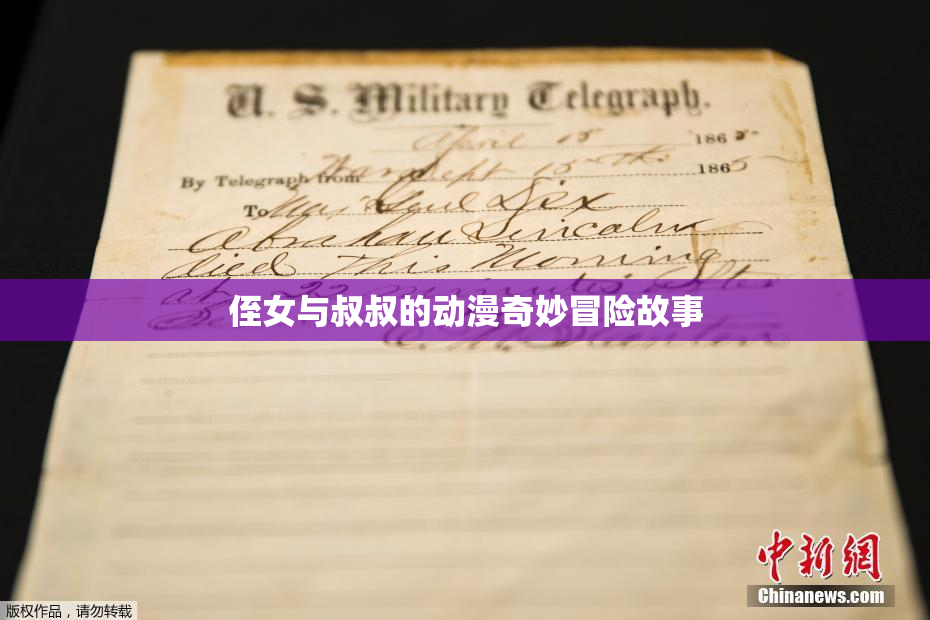 U. S. Military Telegraph.
April 15 1865
By Telegraph from War Dept 15th 1865
To Maj Genl Dix
Abraham Lincoln
died This Morning
at 22 minutes after
侄女与叔叔的动漫奇妙冒险故事
E. M. Stanton
中新網
Chinanews.com
版权作品，请勿转载